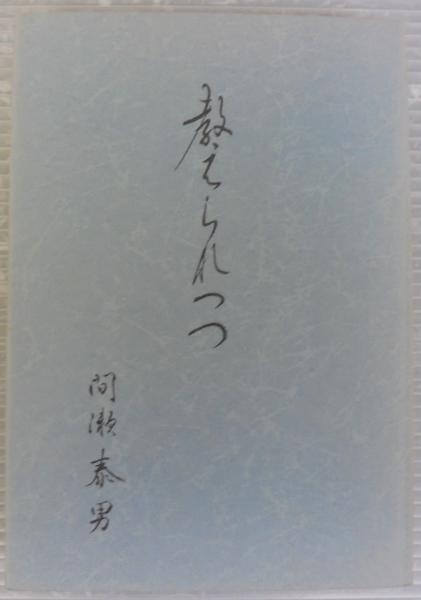 教えられつつ
間瀬泰男